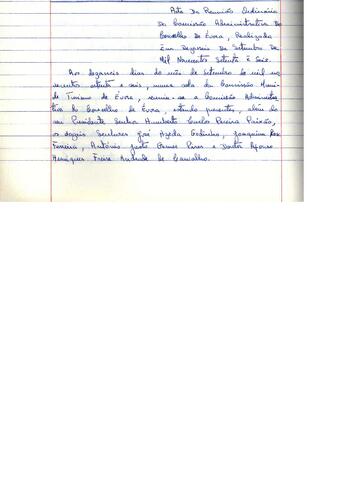 Acta Da Reunião Ordinária
Da Comissão Administrativa Do
Concelho De Évora, Realizada
Em Dezasseis De Setembro De
Mil Novecentos Setenta e Seis.
Aos dezasseis dias do mês de Setembro de mil no-
vecentos setenta e seis, numa sala da Comissão Munici-
de Turismo de Évora, reuniu-se a Comissão Administra-
tiva do Concelho de Évora, estando presentes, além do
seu Presidente Senhor Humberto Carlos Pereira Paixão,
os vogais Senhores José Azeda Godinho, Joaquim Rosa
Ferreira, António Gomes Pires e Doutor Afonso
Henriques Freire Andrade de Carvalho.